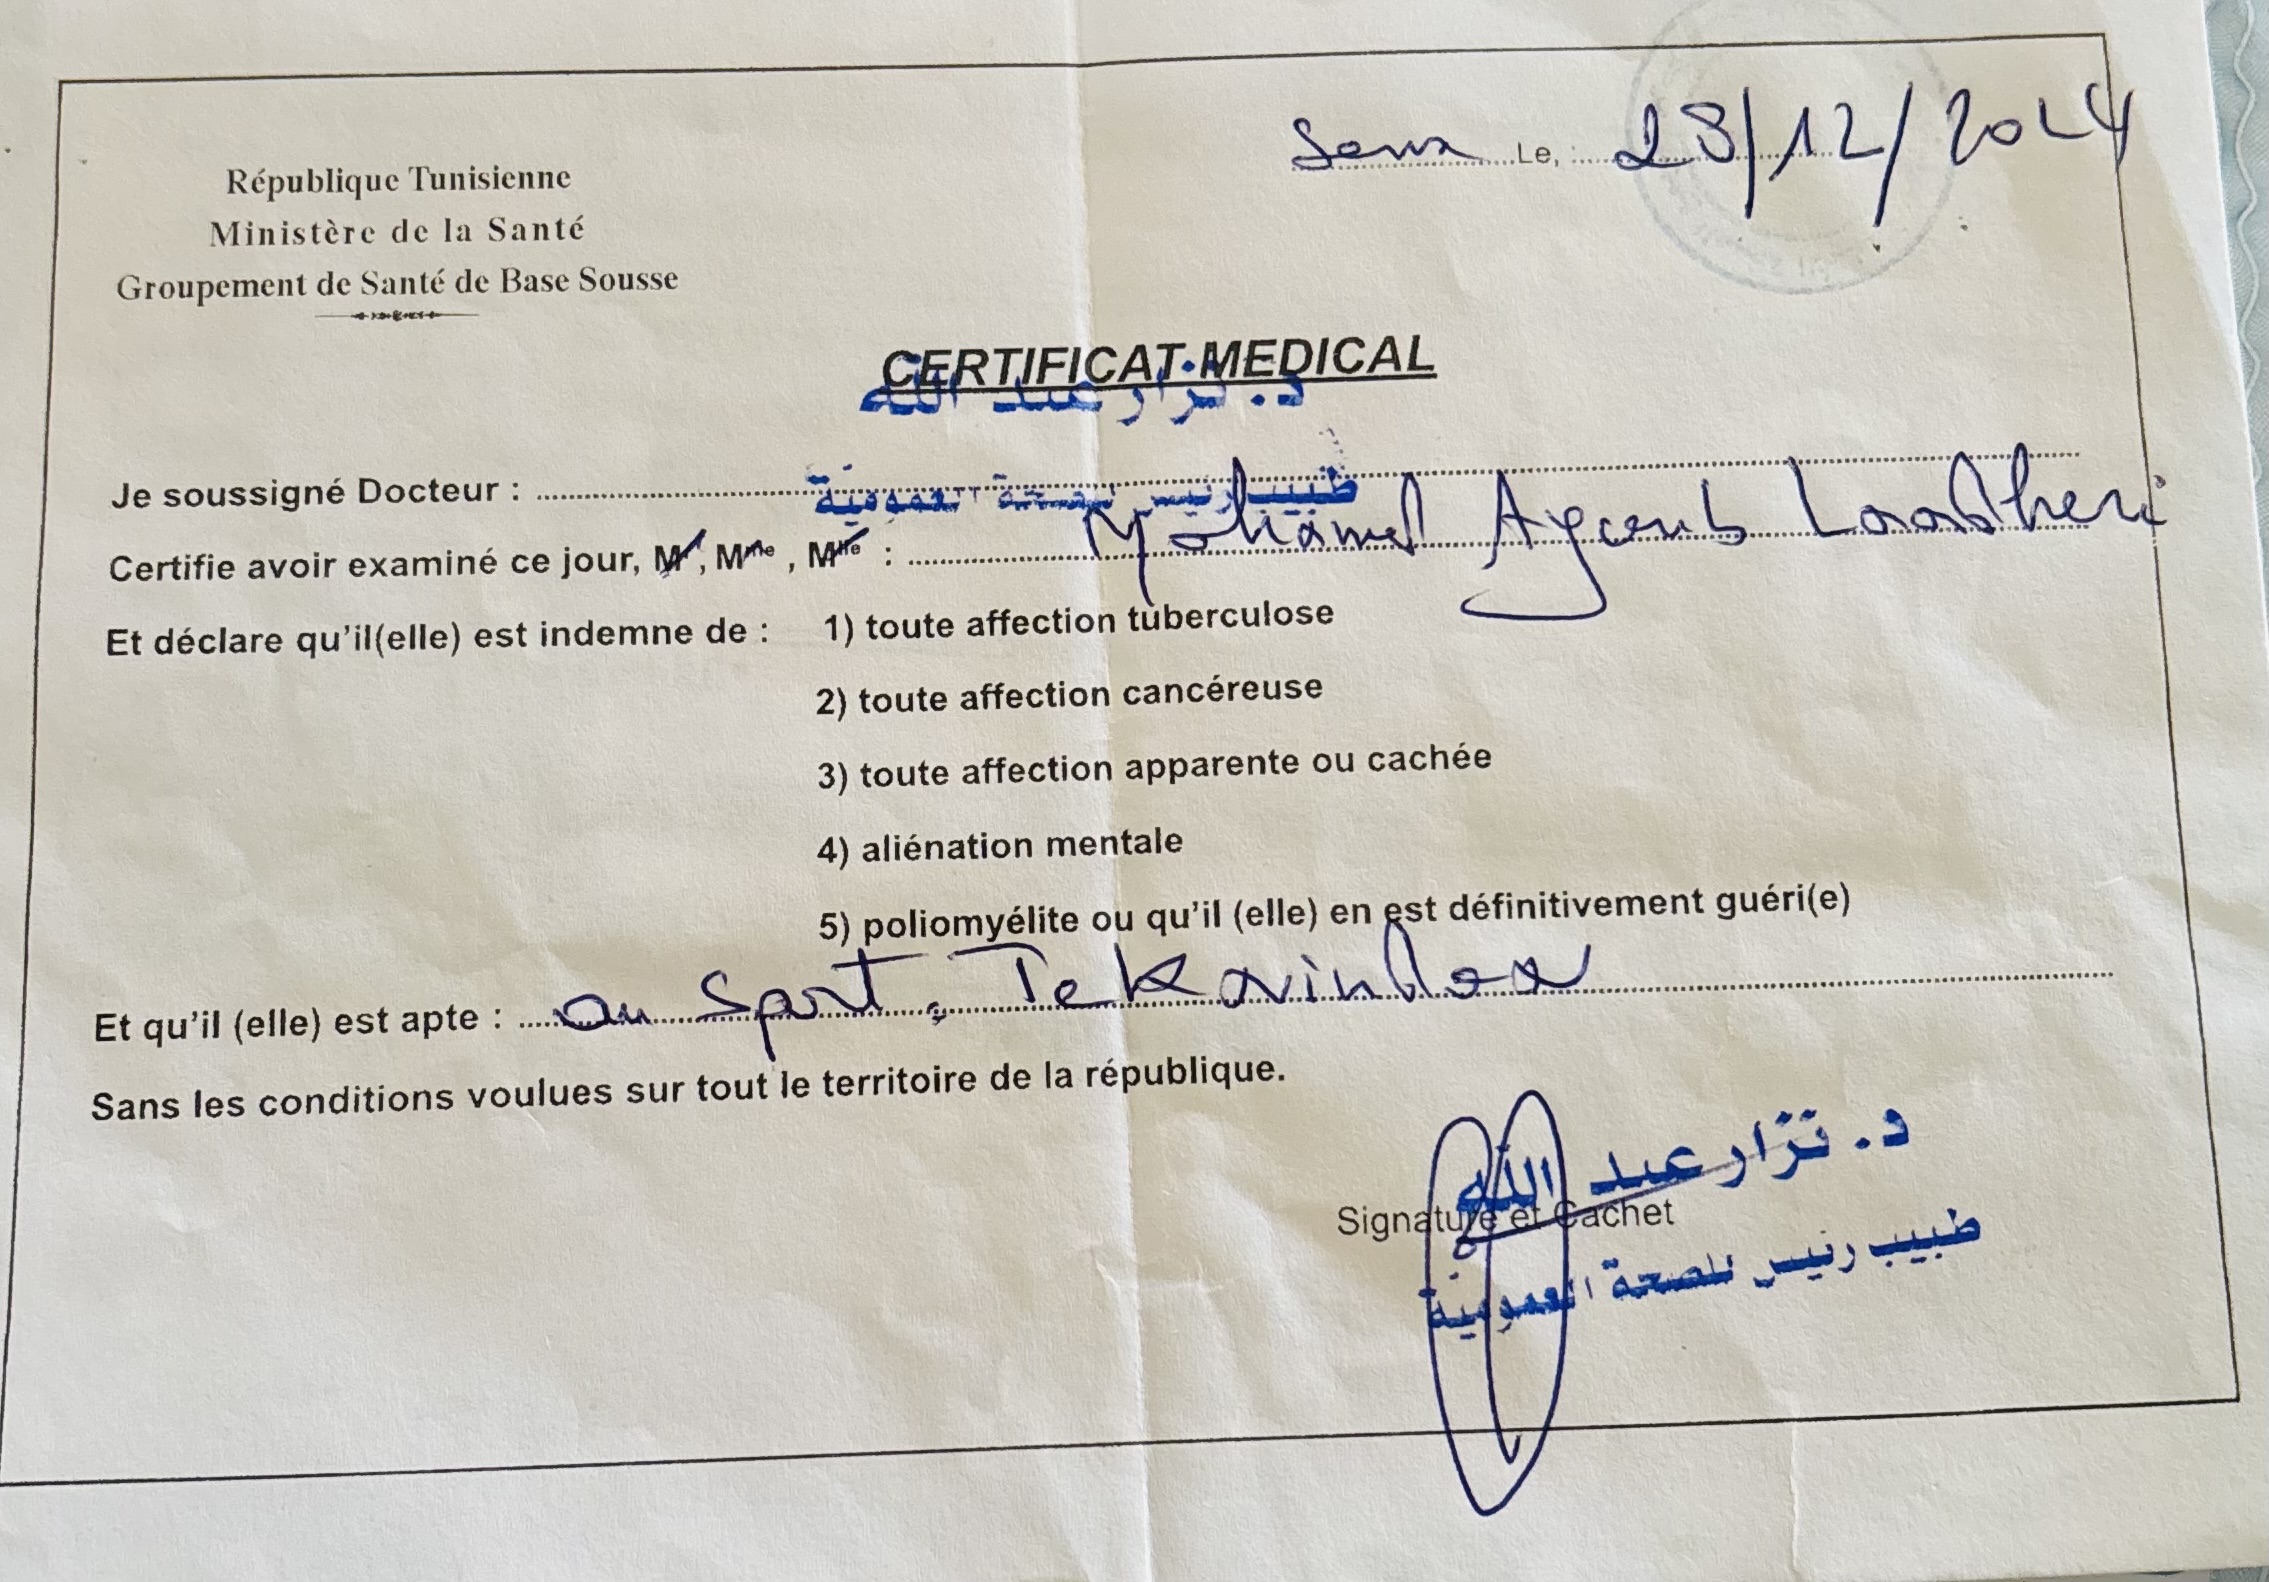 République Tunisienne
Ministère de la Santé
Groupement de Santé de Base Sousse
Le, : 23/12/2024
CERTIFICAT MEDICAL
د. نزار عبد الله
Je soussigné Docteur :
طبيب رئيس للصحة العمومية
Certifie avoir examiné ce jour, Mr, Mme, Mlle : Mohamed Ayoub
Et déclare qu'il(elle) est indemne de : 1) toute affection tuberculose
2) toute affection cancéreuse
3) toute affection apparente ou cachée
4) aliénation mentale
5) poliomyélite ou qu'il (elle) en est définitivement guéri(e)
Et qu'il (elle) est apte : au Sport,
Sans les conditions voulues sur tout le territoire de la république.
د. نزار عبد الله
Signature et Cachet
طبيب رئيس للصحة العمومية